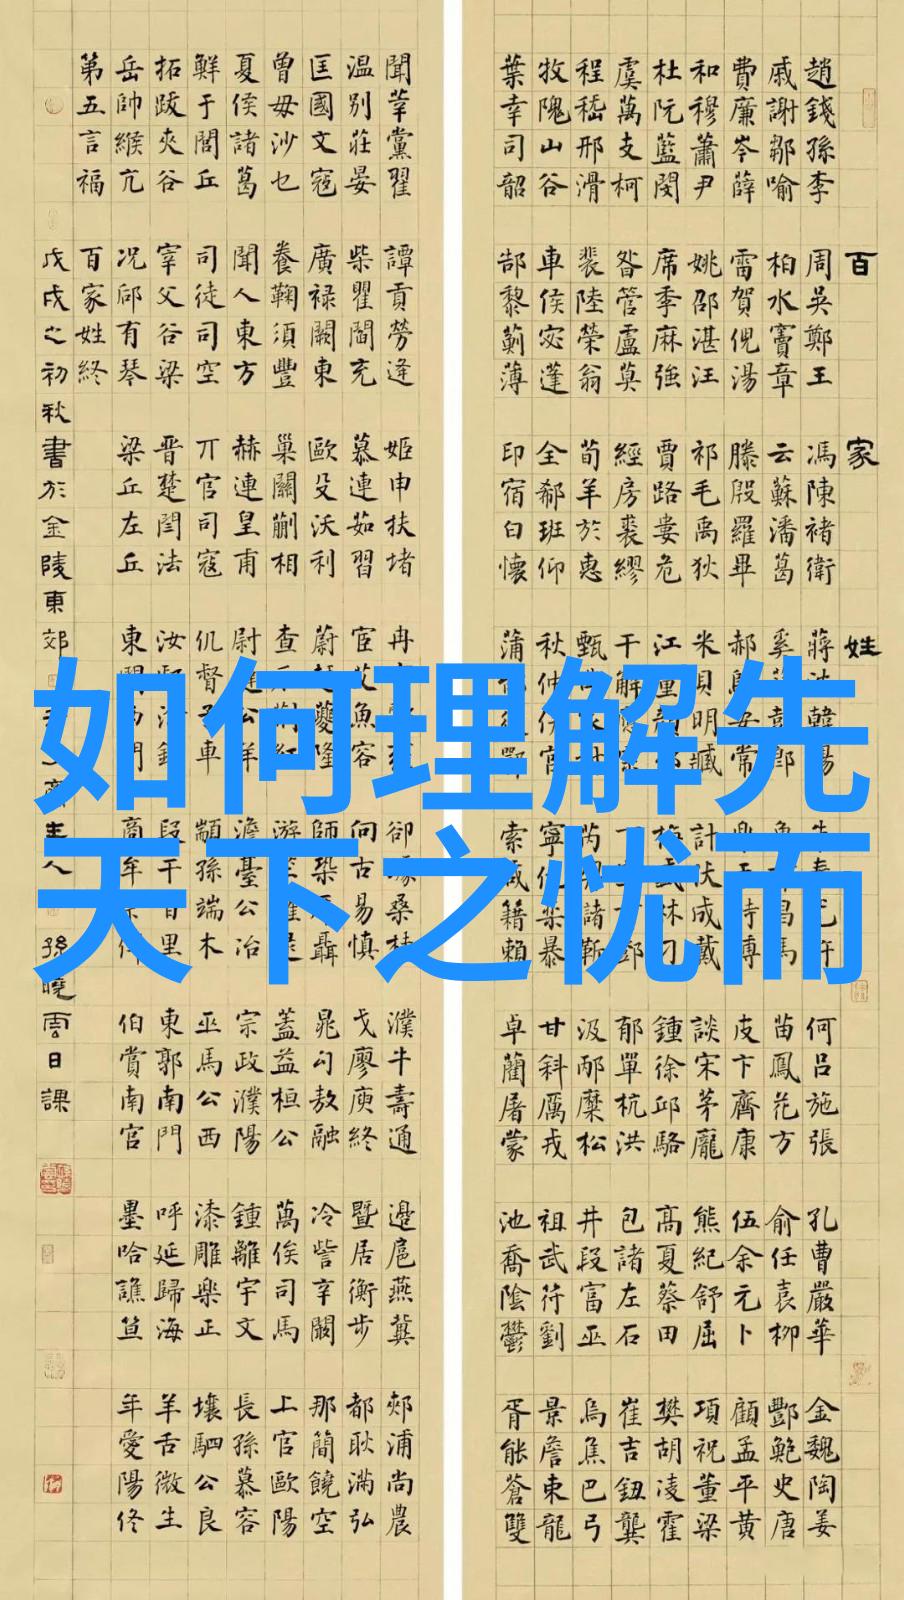 百家姓
趙錢孫李周吳鄭王馮陳褚衛蔣韓何呂施張孔曹嚴華金魏陶姜
戚謝鄒喻柏水竇章云蘇潘葛奚郎昌馬苗鳳花方俞任袁柳酆鮑史唐
費廉岑薛雷賀倪湯滕殷羅畢郝安常時傅皮卞齊康伍余元卜顧孟平黃
和穆蕭尹姚邵湛汪祁毛禹狄米貝明臧計伏成戴談宋茅龐熊紀舒屈項祝董梁
杜阮藍閔席季麻強賈路婁危江童林刁鍾徐邱駱高夏蔡田樊胡凌霍
虞萬支柯昝管盧莫經房裘繆干解鄧郁單杭洪包諸左石崔吉鈕龔
程嵇邢滑裴陸榮翁荀羊於惠甄芮靳汲邴糜松井段富巫烏焦巴弓
牧隗山谷車侯宓蓬全郗班仰秋仲伊宮寧仇暴甘斜厲戎祖武符劉景詹束龍
葉幸司韶郜黎薊薄印宿白懷蒲鄂索咸籍賴卓藺屠蒙池喬陰鬱胥能蒼雙
聞莘黨翟譚貢勞逄姬申扶堵冉卻桑桂濮牛壽通邊扈燕冀郟浦尚農
温別莊晏柴瞿閻充慕連茹習宦艾魚容向古易慎戈廖庾終暨居衡步都耿滿弘
匡國文寇廣祿闕東歐殳沃利蔚夔隆師鞏聶晁勾敖融冷訾辛闞那簡饒空
曾毋沙乜養鞠須豐巢關蒯相查荊紅游蓋益桓公萬俟司馬上官歐陽
夏侯諸葛聞人東方赫連皇甫尉公羊澹臺公冶宗政濮陽鍾離宇文長孫慕容
鮮于閭丘司徒司空亓官司寇仉督車顓孫端木巫馬公西漆雕樂正壤駟公良
拓跋夾谷宰父谷梁晉楚閆法汝段干百里東郭南門呼延歸海羊舌微生
岳帥緱亢况郈有琴梁丘左丘東門西門商牟伯賞南宮墨哈譙笪年愛陽佟
第五言福百家姓終
戊戌之初秋書於金陵東郊主人孫曉雲日課
如何理解先
天下之忧而